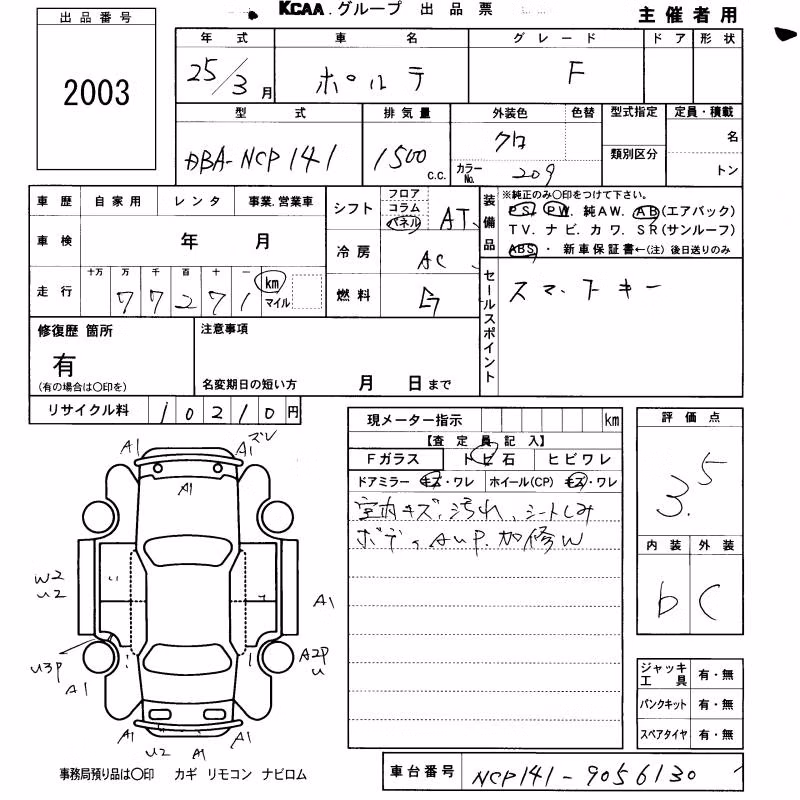 KCAA.グループ 出品票 主催者用
出品番号
2003
年式 車名 グレード ドア 形状
25/3月 ポルテ F
型式 排気量 外装色 色替 型式指定 定員・積載
DBA-NCP141 1500 c.c. クロ 名
カラーNo. 209 類別区分 トン
車歴 自家用 レンタ 事業.営業車
シフト フロア コラム パネル AT
装備品 ※純正のみ〇印をつけて下さい。
PS. PW. 純AW. AB(エアバック)
TV. ナビ. カワ. SR(サンルーフ)
ABS ・ 新車保証書←(注)後日送りのみ
車検 年 月
冷房 AC
走行 十万 万 千 百 十 一
77271 km マイル
燃料 G
セールスポイント スマートキー
修復歴 箇所
有
(有の場合は〇印を)
注意事項
名変期日の短い方 月 日まで
リサイクル料 10210円
現メーター指示 km
【査定員記入】
Fガラス トビ石 ヒビワレ
ドアミラー キズ・ワレ ホイール(CP) キズ・ワレ
室内キズ、汚れ、シートしみ
ボディAUP.加修W
評価点
3.5
内装 外装
b C
A1 A1 ズレ
A1
W2
U2
A1
U3P
A1
A2P
U
A1 U2 A1 A1
ジャッキ工具 有・無
パンクキット 有・無
スペアタイヤ 有・無
事務局預り品は〇印 カギ リモコン ナビロム
車台番号 NCP141-9056130